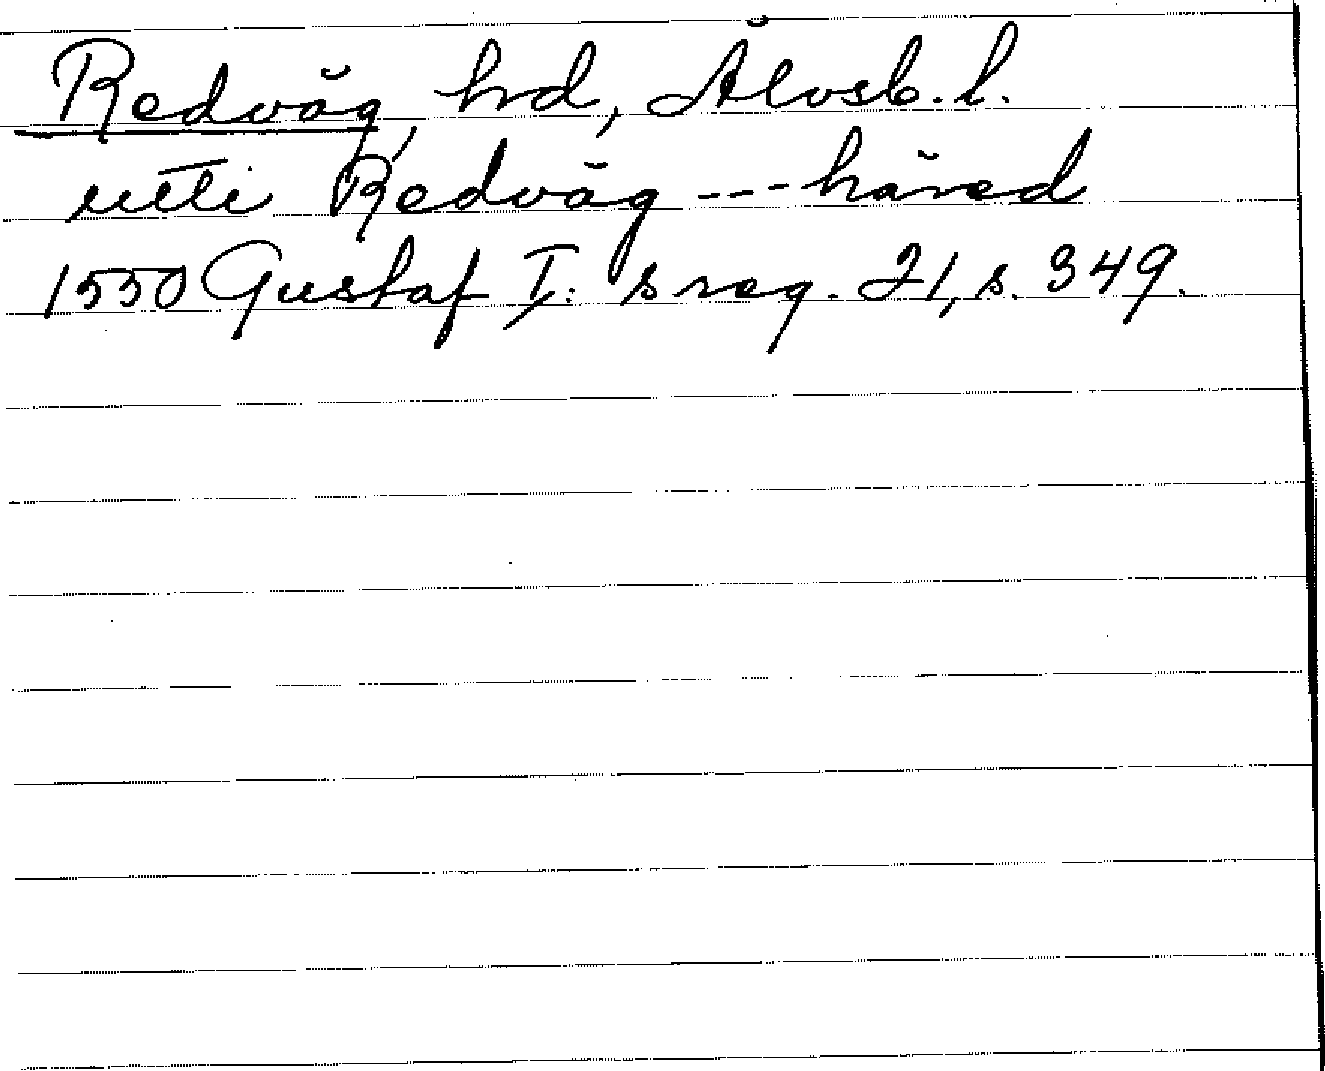 Redväg, hd, Älvsb. l.
utti Redväg --- häred
1550 Gustaf I: s reg. 21, s. 349.